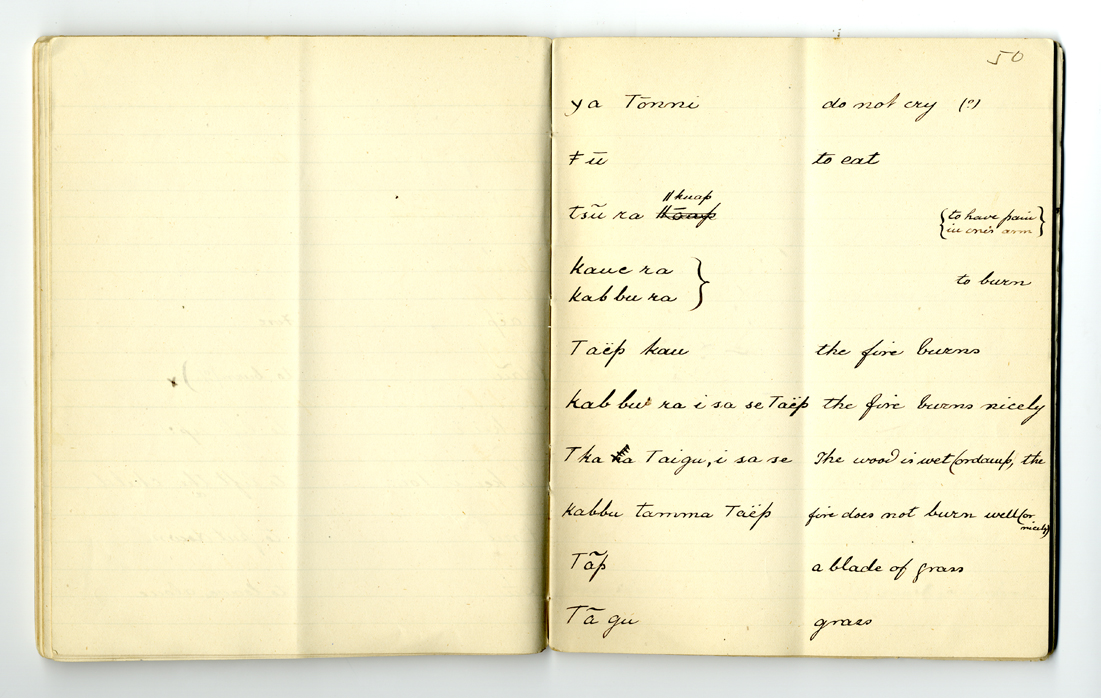 50
ya Tōnni do not cry (?)
ǂ ū to eat
ǁkuap
tsū̃ ra ǁōap {to have pain
in one's arm}
kaue ra
kabbu ra } to burn
Taëp kau the fire burns
kabbu ra i sa se Taëp the fire burns nicely
Tka Taigu, i sa se The wood is wet (or damp, the
kabbu tamma Taëp fire does not burn well (or
nicely)
Tãp a blade of grass
Tã gu grass